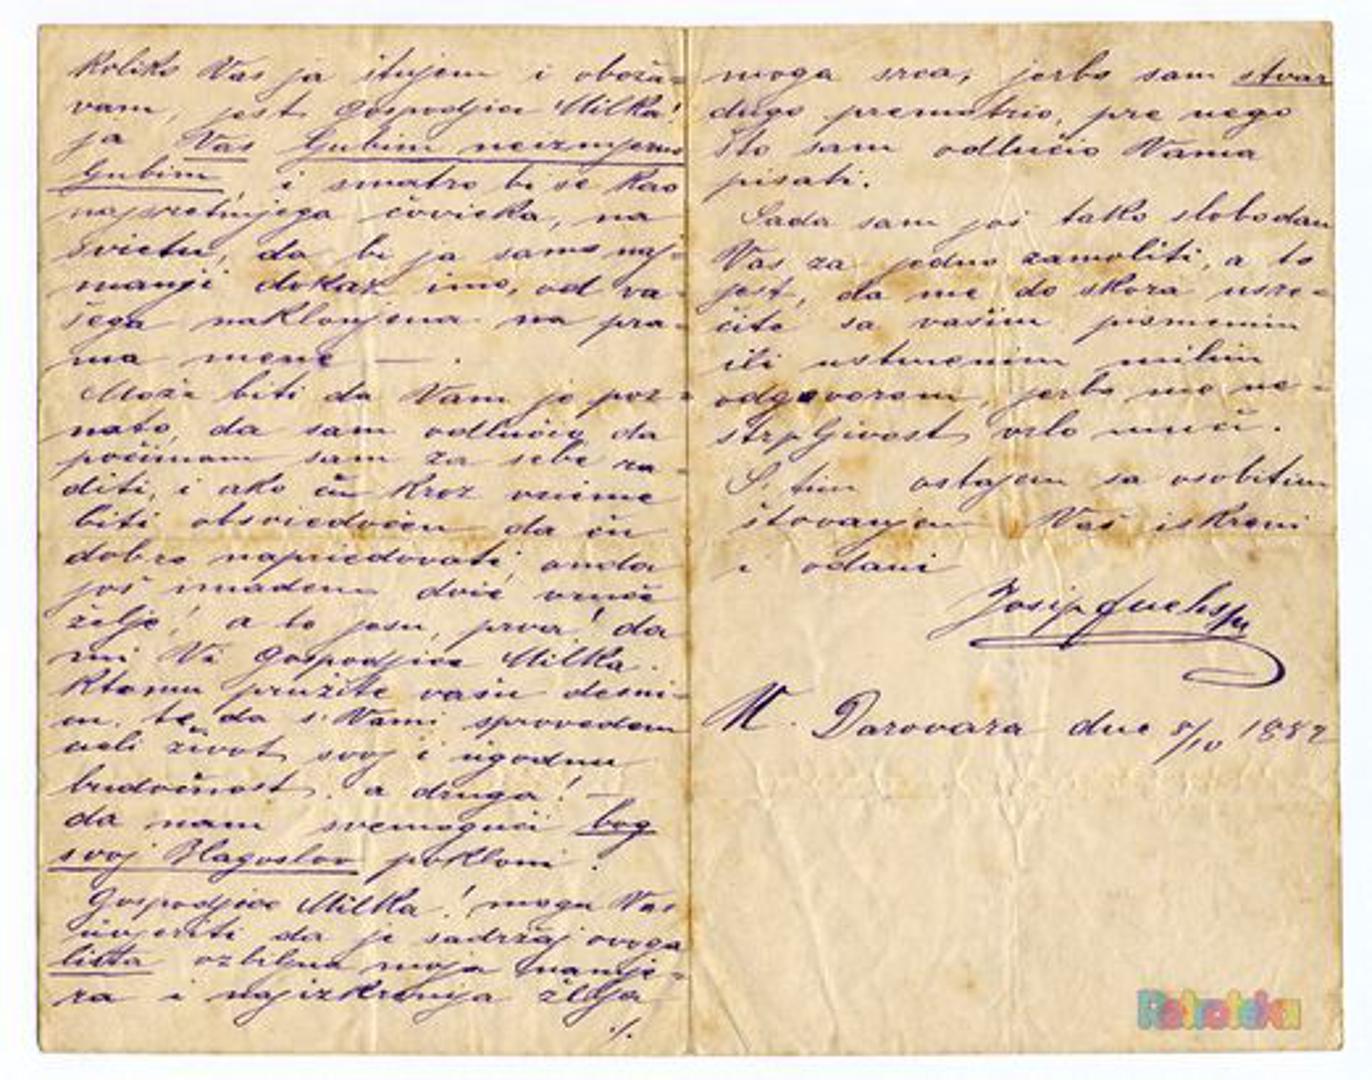 Koliko Vas ja štujem i oboža=
vam, jest Gospodjica Milka!
ja Vas ljubim neizmjerno
ljubim, i smatro bi se kao
najsretnijega čovieka, na
svietu, da bi ja samo naj=
manji dokaz imo, od va=
šega naklonjena na pra=
ma mene — .
Može biti da Vam je poz=
nato, da sam odlučio da
počimam sam za sebe ra=
diti, i ako ću kroz vrieme
biti obsviedočen da ću
dobro napriedovati, onda
još imadem dvie vruće
želje! a to jesu, prva! da
mi Vi Gospodjica Milka.
Ktomu pružite vašu desni=
cu, te da s Vami sprovedem
cieli život svoj i ugodnu
budućnost, a druga! —
da nam svemogući bog
svoj Blagoslov pokloni!
Gospodjica Milka! mogu Vas
uvjeriti da je sadržaj ovoga
lista ozbilna moja namje=
ra i najizkrenija želja
./.
moga srca, jerbo sam stvar
dugo premotrio, pre nego
što sam odlučio Vama
pisati.
Sada sam još tako slobodan
Vas za jedno zamoliti, a to
jest, da me do skora usre=
čite sa vašim pismenim
ili ustmenim milim
odgovorom, jerbo me ne=
strpljivost vrlo muči.
S. tim ostajem sa osobitim
štovanjem Vaš iskreni
i odani
Josip Fuchs
Darovara dne 8/10 1882
Retroteka